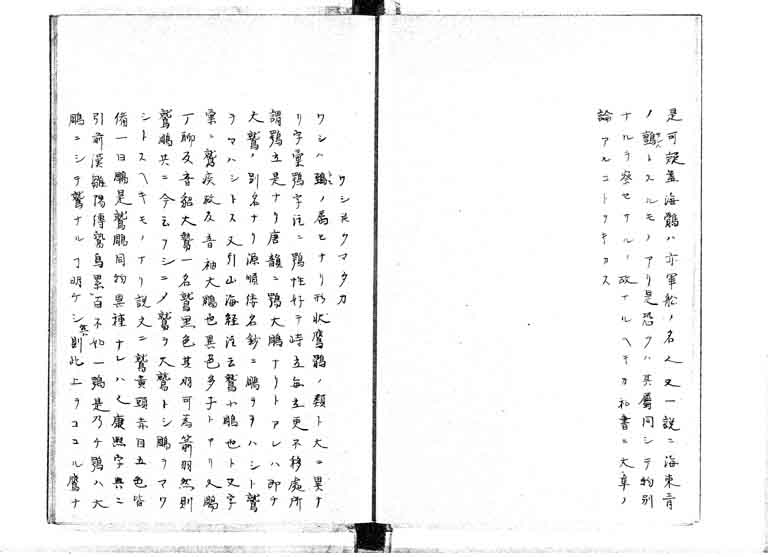 是可疑蓋海鶻ハ亦軍船ノ名人又一説ニ海東青
ノ鸇トスルモノアリ是恐クハ其屬同シテ物別
ナルヲ察セサルノ故ナルヘキカ和書ニ大卓ノ
論アルコトヲキカス
ワシ クマタカ
ワシハ ノ屬ヒナリ形状鷹鷂ノ類ト大ニ異ナ
リ字彙鶚字注ニ鶚性好テ時立毎立更不移處所
謂鶚立是ナリ唐韻ニ鶚大鵰ナリトアレハ即チ
大鷲ノ別名ナリ源順倭名鈔ニ鵰ヲヲハシト鷲
ヲマハシトス又引山海經注云鷲小鵰也ト又字
彙ニ鷲疾救反音袖大鵰也異色多子トアリ又鵰
丁聊反音貂大鷲一名鷲黒色其羽可為箭羽然則
鷲鵰共ニ今云ワシニ 鷲ヲ大鷲トシ鵰ヲマワ
シトスヘキモノナリ説文ニ鷲黄頭赤目五色皆
備一曰鵰是鷲鵰同物異種ナレハ 康熙字典ニ
引前漢鄒陽傳鷙鳥累百不如一鶚是乃チ鶚ハ大
鵰ニシテ鷲ナルヿ明ケシ其則此上ヲココル鷹ナ